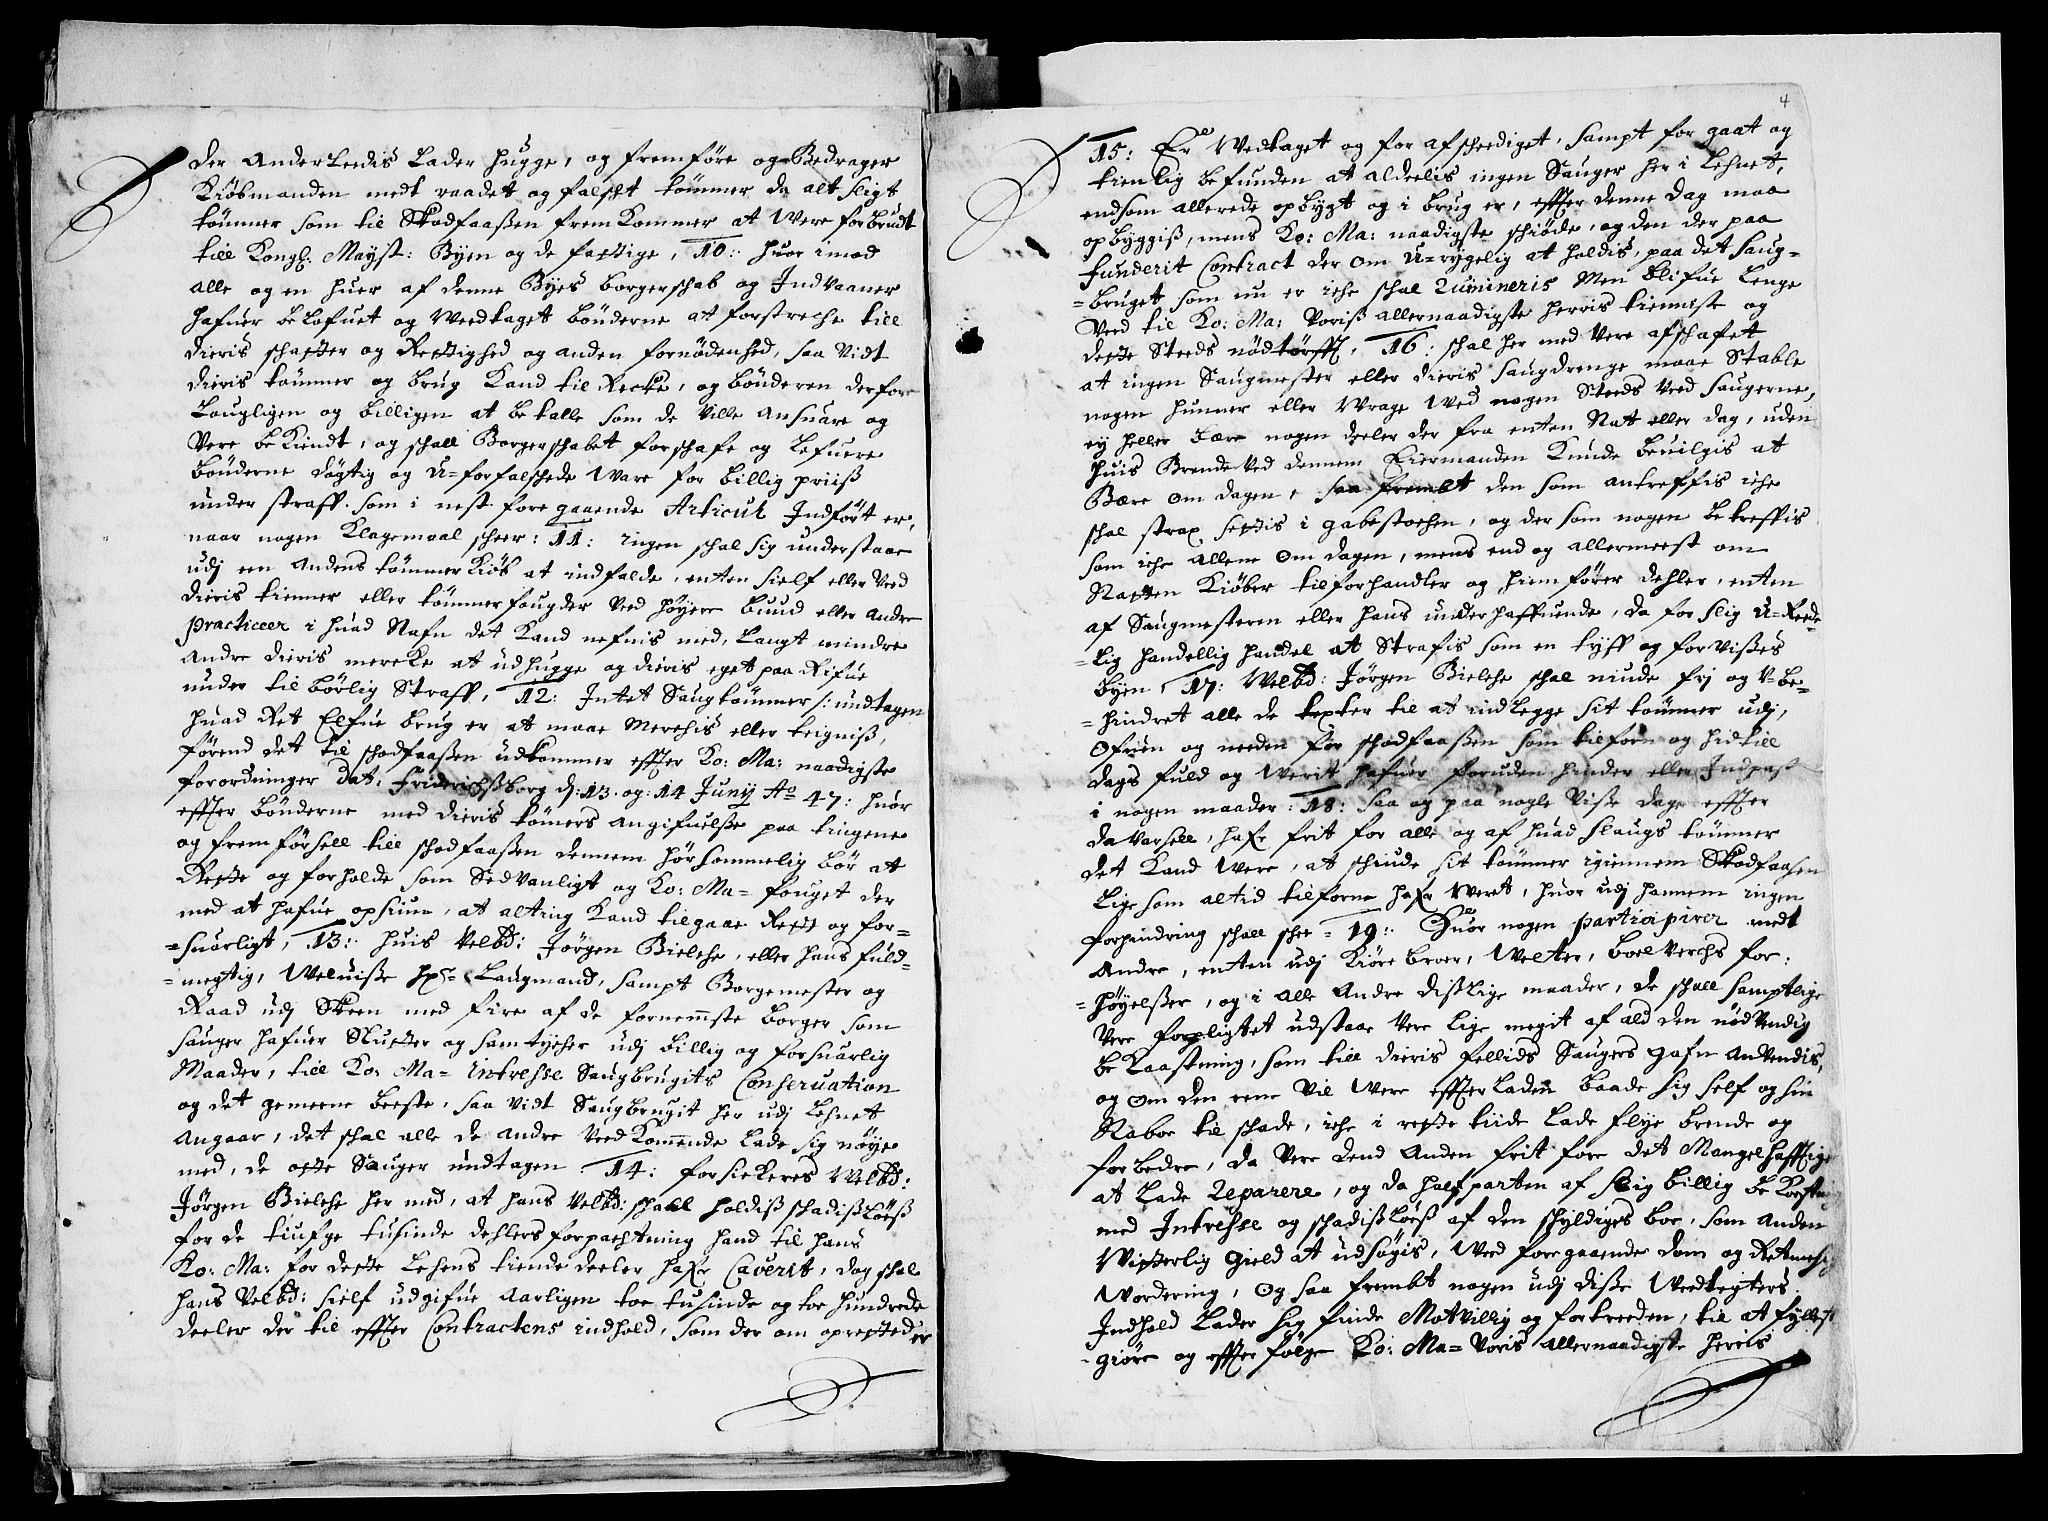 der Anderleedis lader hugge, og fremføre og Bedrager
Kiøbmanden medt raadet og falscht tømmer da alt sligt
tømmer som til Skodfaaßen fremkommer at Were forbrudt
till Kongl. Mayst: Byen og de fattige, 10: Huor imod
alle og en huer af denne Byes borgerschab og Indvaaner
hafuer belofuet og Weedtaget bønderne at forstreche till
dieris schatter og Rettighed og anden fornødenhed, saa vidt
dieris tømmer og brug Kand til Recke, og bønderen derfor
Lougligen og billigen at betalle som de ville ansuare og
Vere bekiendt, og schall Borgerschabet forschafe og lefuere
bønderne døgtig og U=forfalschede Ware for billig priiß
under straff som i nest foregaaende Articul Indført er,
naar nogen Klagemaal scheer: 11: ingen schal sig understaae
udj een andens tømmer Kiøb at indfalde, enten sielf eller ved
dieris tienner eller tømmerfougder ved høyere buud eller andre
practicer i huad Nafn det Kand nefnis med, langt mindre
andre dieris mercke at udhugge og dieris eget paa Rifue
under tilbørlig Straff, 12: Intet Saugtømmer /: undtagen
huad Ret Elfue brug er at maae Merchis eller teigniß,
førend det til schodfaaßen udkommer effter Ko: Ma: naadigste
forordninger Dat: Friderichsborg d: 13. og: 14 Junij Ao 47: huor
effter bønderne med dieris tømers angifuelße paa tingene
og fremførsell till schodfaaßen dennem hørsommelig bør at
Rette og forholde som Sedvanligt og Ko: Ma= fouget der
med at hafue opsiun, at alting Kand tilgaae Rett og for=
=suarligt, 13: huis Velbd: Jørgen Bielche, eller hans fuld=
=megtig, Weluiße Hr Laugmand, sampt Borgemester og
Raad udj Skeen med fire af de fornemmste borger som
sauger hafuer Slutter og samtycher udj billig og forsuarlig
Maader, till Ko: Ma= Intresse Saugbrugits Conseruation
og det gemeene beeste, saa vidt Saugbrugit her udj Lehnet
angaar, det schal alle de andre Vedkommende lade sig nøye
med, de otte Sauger undtagen 14: forsickeres Welbd:
Jørgen Bielche her med, at hans Velbd: schall holdiß schadißløeß
for de tiufge tusinde dehlers forpachtning hand til hans
Ko: Ma: for dette Lehens tiende deeler hafr Caverit, dog schal
hans Velbd: sielf udgifue Aarligen toe tusinde og toe hundrede
deeler der til effter Contractens indhold, som der om oprettet er
4
15: Er Wedtaget og for afscheediget, sampt for gaat og
tienlig befunden at aldeelis ingen Sauger her i Lehnet,
endsom allerede opbygt og i brug er, effter denne Dag maa
opbyggiß, mens Ko: Ma: naadigste schiøde, og den der paa
funderit Contract der om U=rygelig at holdis, paa det Saug=
=bruget som nu er iche schal Ruineris Men blifue lenge
Ved til Ko: Ma: Voriß allernaadigste herris tienniste og
dette Steeds nødtørfft, 16: schal her med Vere afschaffet
at ingen Saugmester eller dieris saugdrenge maae Stable
nogen hunner eller Wrage Wed nogen Steeds ved saugerne,
ey heller bære nogen deeler der fra enten Nat eller dag, uden
huis Brendeved dennem Eiermanden Kunde beuilgis at
Bære om dagen, saa frembt den som antreffis iche
schal strax settis i gabestochen, og der som nogen betreffis
som iche allene om dagen, mens end og allermeest om
Natten Kiøber tilforhandler og hiemfører dehler, enten
af Saugmesteren eller hans underhaffuende, da for slig U=Reede
=lig handellig handel at Strafis som en tyff og forvißes
byen, 17: Welbd: Jørgen Bielche schal niude frj og V=be=
=hindret alle de texter til at indlegge sit tømmer udj,
Ofuen og neden for schodfaaßen som tilforn og hidtill
dags fuld og Werit hafuer foruden hinder eller Indpaß
i nogen maader: 18: saa og paa nogle Viße dage effter
da varsell, hafr frit for alle og af huad slaugs tømmer
det Kand Were, at schiude sit tømmer igiennem Skodfaasen
lige som altid tilforne hafr Weret, huor udj hannem ingen
forhindring schall schee = 19: Huor nogen participirer medt
Andre, enten udj Kiøre broer, Welter, boelverchs for:
=høyelßer, og i alle Andre dißlige maader, de schall samptlige
Vere forpligtet udstaae Vere lige megit af ald den nødvendig
bekaastning, som till dieris fellids Saugers gafn anvendis,
og om den eene vil Were effterladen baade sig self og sin
Naboe til schade, iche i rette tiide lade flye brende og
forbedre, da Vere dend anden frit fore det Mangelhafftige
at lade Reparere, og da halfparten af slig billig bekostning
med Intresse og schadißløeß af den schyldiges boe, som anden
Witterlig Gield at udsøgis, Wed foregaaende dom og Retmessig
Wordering, Og saa frembt nogen udj diße Wedtegters
Indhold lader sig finde Motvillig og fortreeden, til at fyllest
giøre og effterfølge Ko: Ma= Voris allernaadigste herris